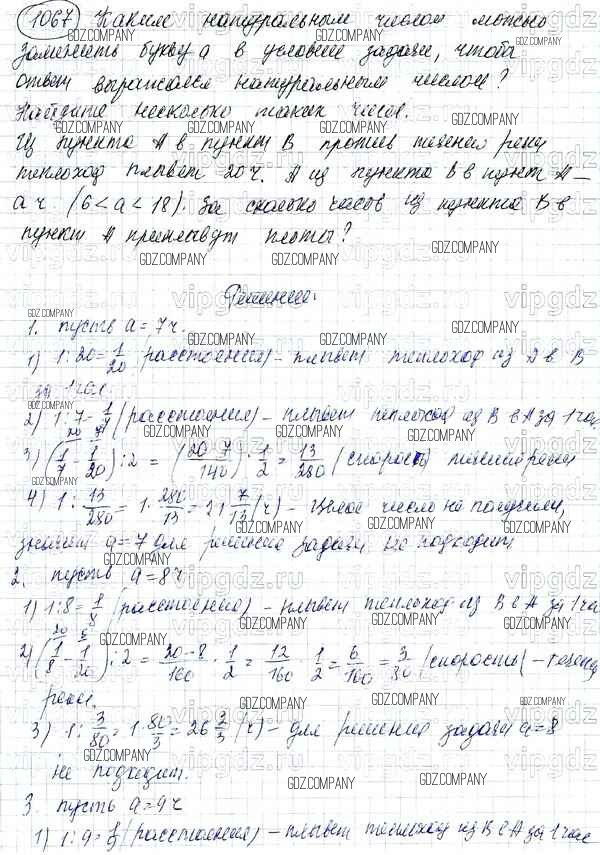 1067 Каким натуральным числом можно
заменить букву a в условии задачи, чтобы
ответ выражался натуральным числом?
Найдите несколько таких чисел.
Из пункта A в пункт B против течения реки
теплоход плывет 20 ч. А из пункта B в пункт A —
a ч (6 < a < 18). За сколько часов из пункта B в
пункт A приплывут плоты?
Решение:
1. пусть a = 7 ч.
1) 1 : 20 = 1/20 (расстояния) – плывет теплоход из A в B
за 1 час.
2) 1 : 7 = 1/7 (расстояния) – плывет теплоход из B в A за 1 час
3) (1/7 - 1/20) : 2 = (20-7/140) · 1/2 = 13/280 (скорость) течения реки
4) 1 : 13/280 = 1 · 280/13 = 21 7/13 (ч) – целое число не получили,
значит a = 7 для решения задачи не подходит
2. пусть a = 8 ч
1) 1 : 8 = 1/8 (расстояния) – плывет теплоход из B в A за 1 час
2) (1/8 - 1/20) : 2 = 20-8/160 · 1/2 = 12/160 · 1/2 = 6/160 = 3/80 (скорость) – течения
реки.
3) 1 : 3/80 = 1 · 80/3 = 26 2/3 (ч) – для решения задачи a = 8
не подходит.
3. пусть a = 9 ч
1) 1 : 9 = 1/9 (расстояния) – плывет теплоход из B в A за 1 час